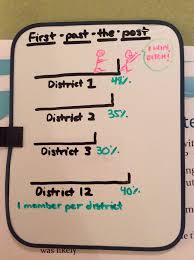 First-past-the-post
I WIN,
BITCH!
District 1 48%
District 2 35%
District 3 30%
District 12 40%
1 member per district
was likely